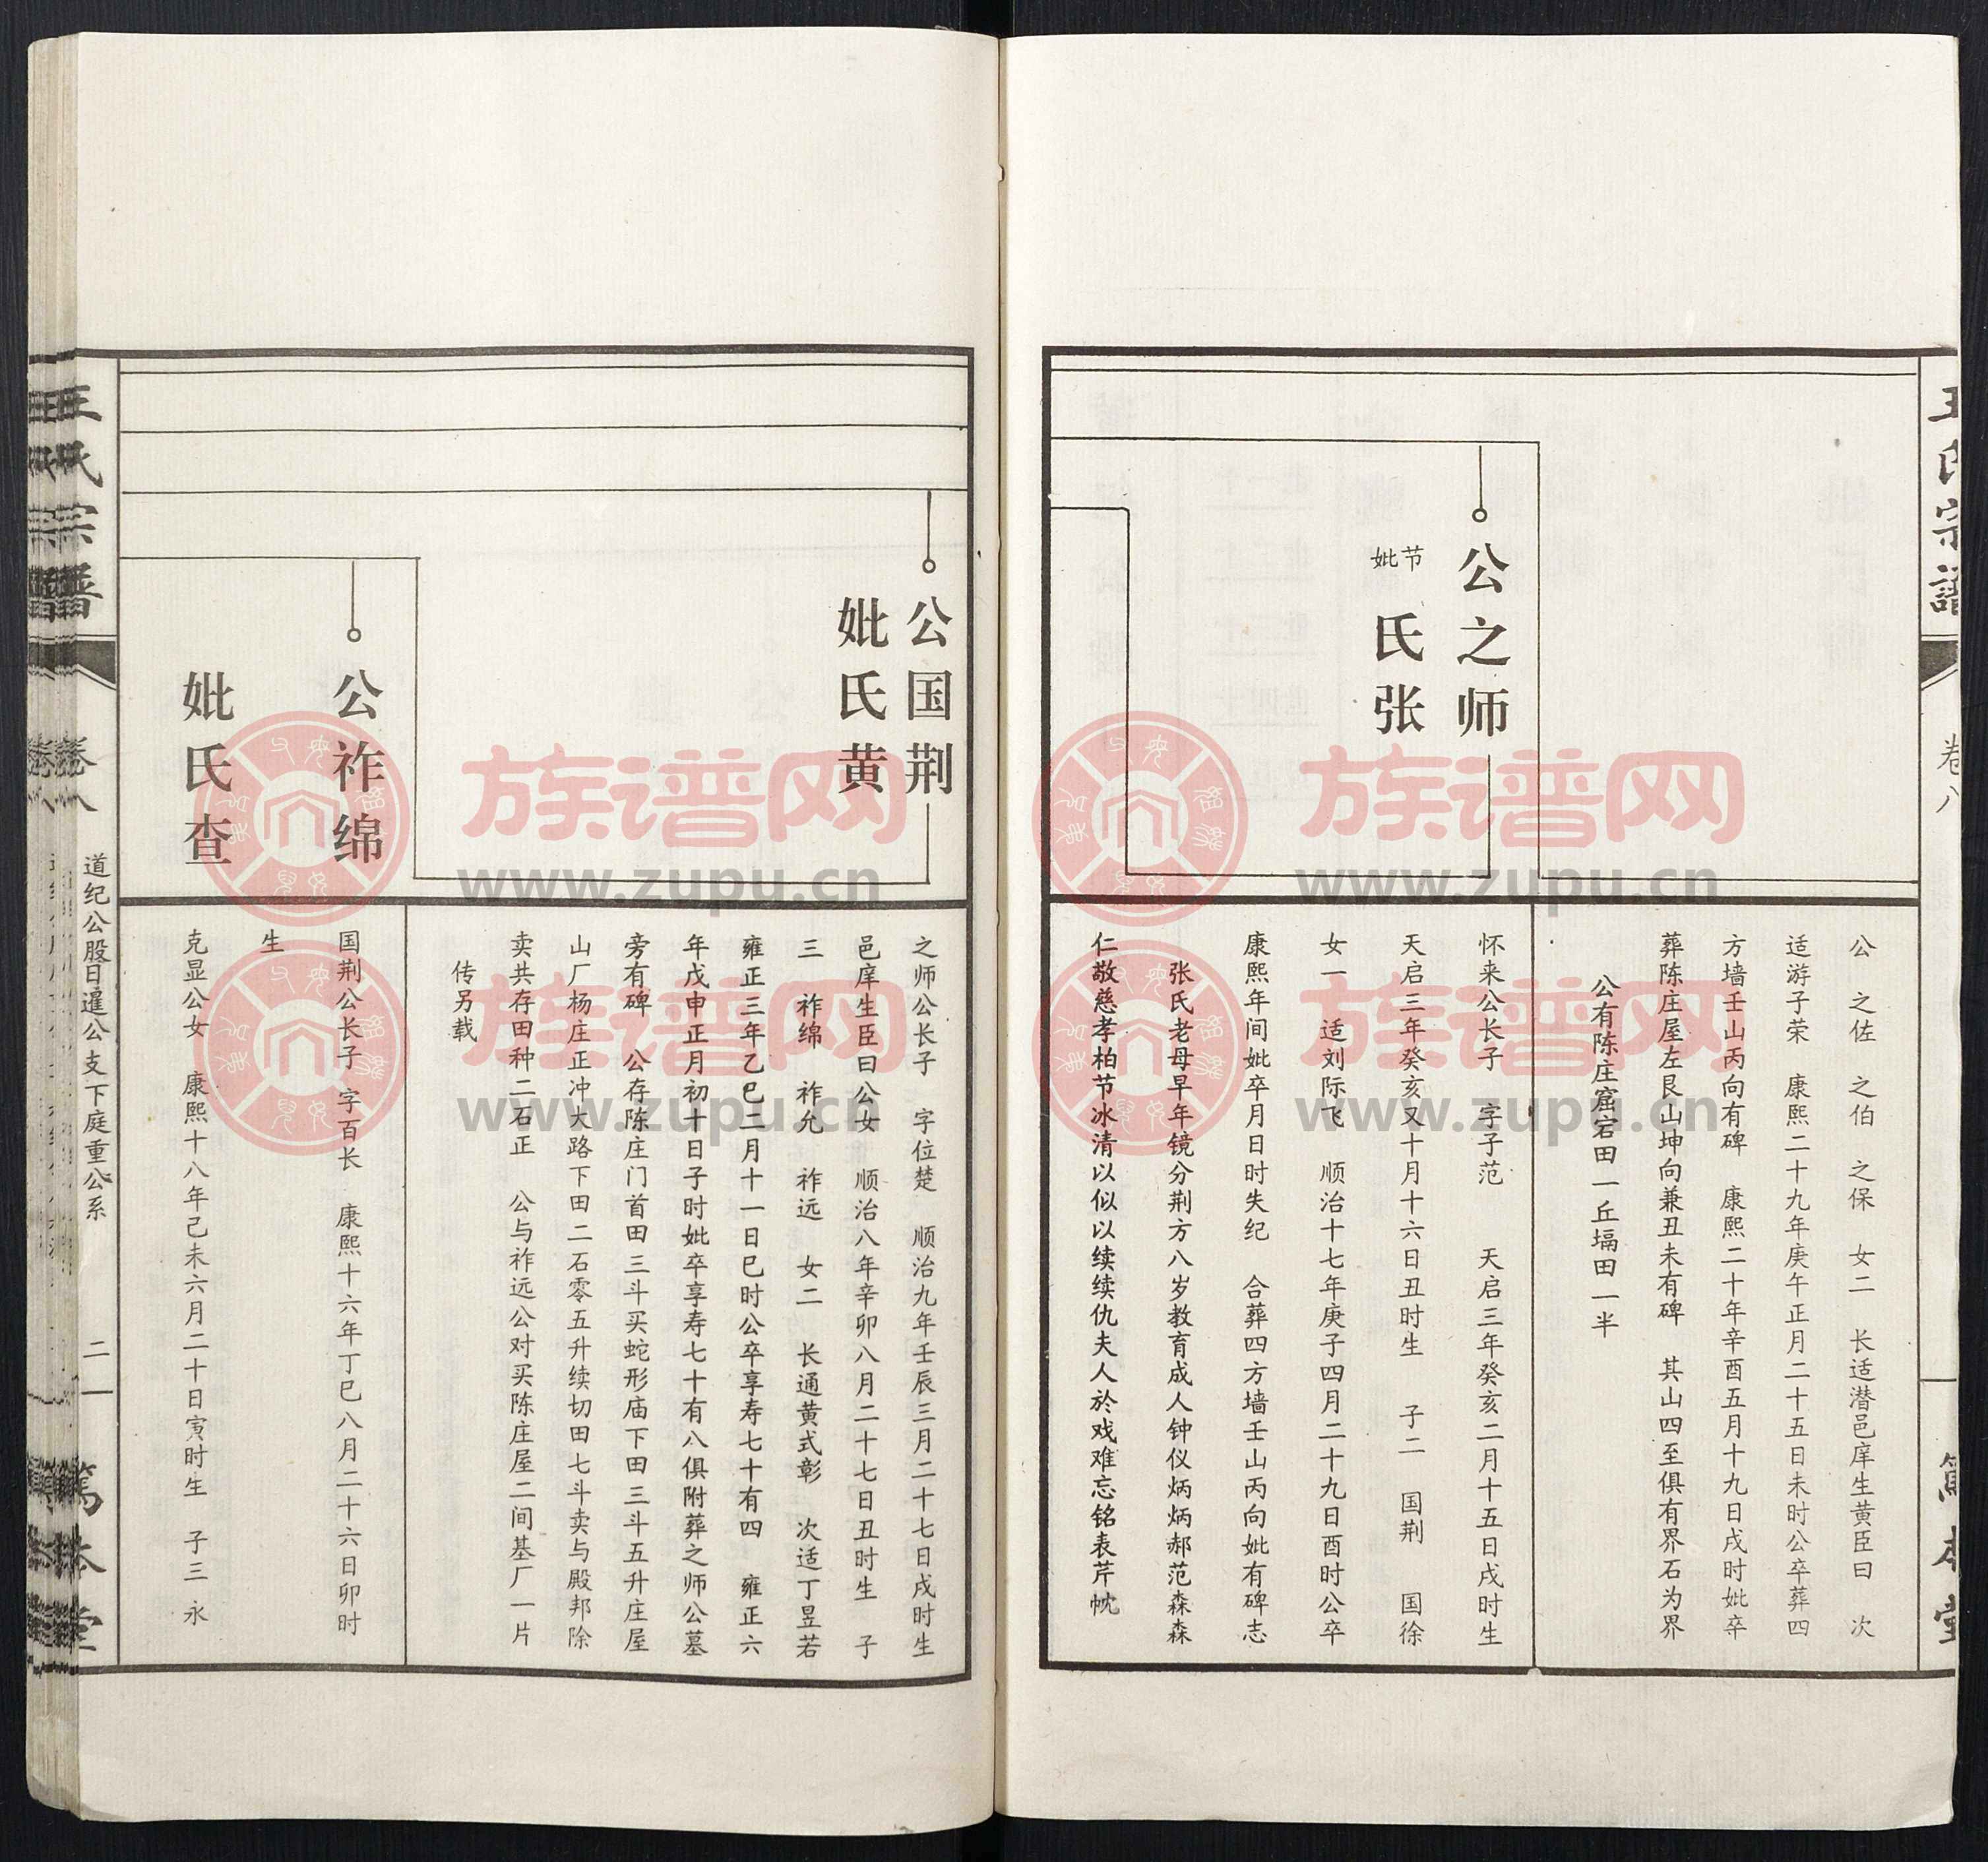 王氏宗譜
卷八
篤本堂
公之师
节
妣
氏张
公　之佐　之伯　之保　女二　长适潜邑庠生黄臣曰　次
适游子荣　康熙二十九年庚午正月二十五日未时公卒葬四
方墙壬山丙向有碑　康熙二十年辛酉五月十九日戌时妣卒
葬陈庄屋左艮山坤向兼丑未有碑　其山四至俱有界石为界
公有陈庄窟宕田一丘塥田一半
怀来公长子　字子范　天启三年癸亥二月十五日戌时生
天启三年癸亥又十月十六日丑时生　子二　国荆　国徐
女一　适刘际飞　顺治十七年庚子四月二十九日酉时公卒
康熙年间妣卒月日时失纪　合葬四方墙壬山丙向妣有碑志
张氏老母早年镜分荆方八岁教育成人钟仪炳炳郝范森森
仁敬慈孝柏节冰清以似以续续仇夫人於戏难忘铭表芹忱
公国荆
妣氏黄
公祚绵
妣氏查
之师公长子　字位楚　顺治九年壬辰三月二十七日戌时生
邑庠生臣曰公女　顺治八年辛卯八月二十七日丑时生　子
三　祚绵　祚允　祚远　女二　长通黄式彰　次适丁昱若
雍正三年乙巳二月十一日巳时公卒享寿七十有四　雍正六
年戊申正月初十日子时妣卒享寿七十有八俱附葬之师公墓
旁有碑　公存陈庄门首田三斗买蛇形庙下田三斗五升庄屋
山厂杨庄正冲大路下田二石零五升续切田七斗卖与殿邦除
卖共存田种二石正　公与祚远公对买陈庄屋二间基厂一片
传另载
国荆公长子　字百长　康熙十六年丁巳八月二十六日卯时
生
克显公女　康熙十八年己未六月二十日寅时生　子三　永
王氏宗譜
卷八
道纪公股日暹公支下庭重公系
二一
篤本堂
族谱网
www.zupu.cn
族谱网
www.zupu.cn
族谱网
www.zupu.cn
族谱网
www.zupu.cn